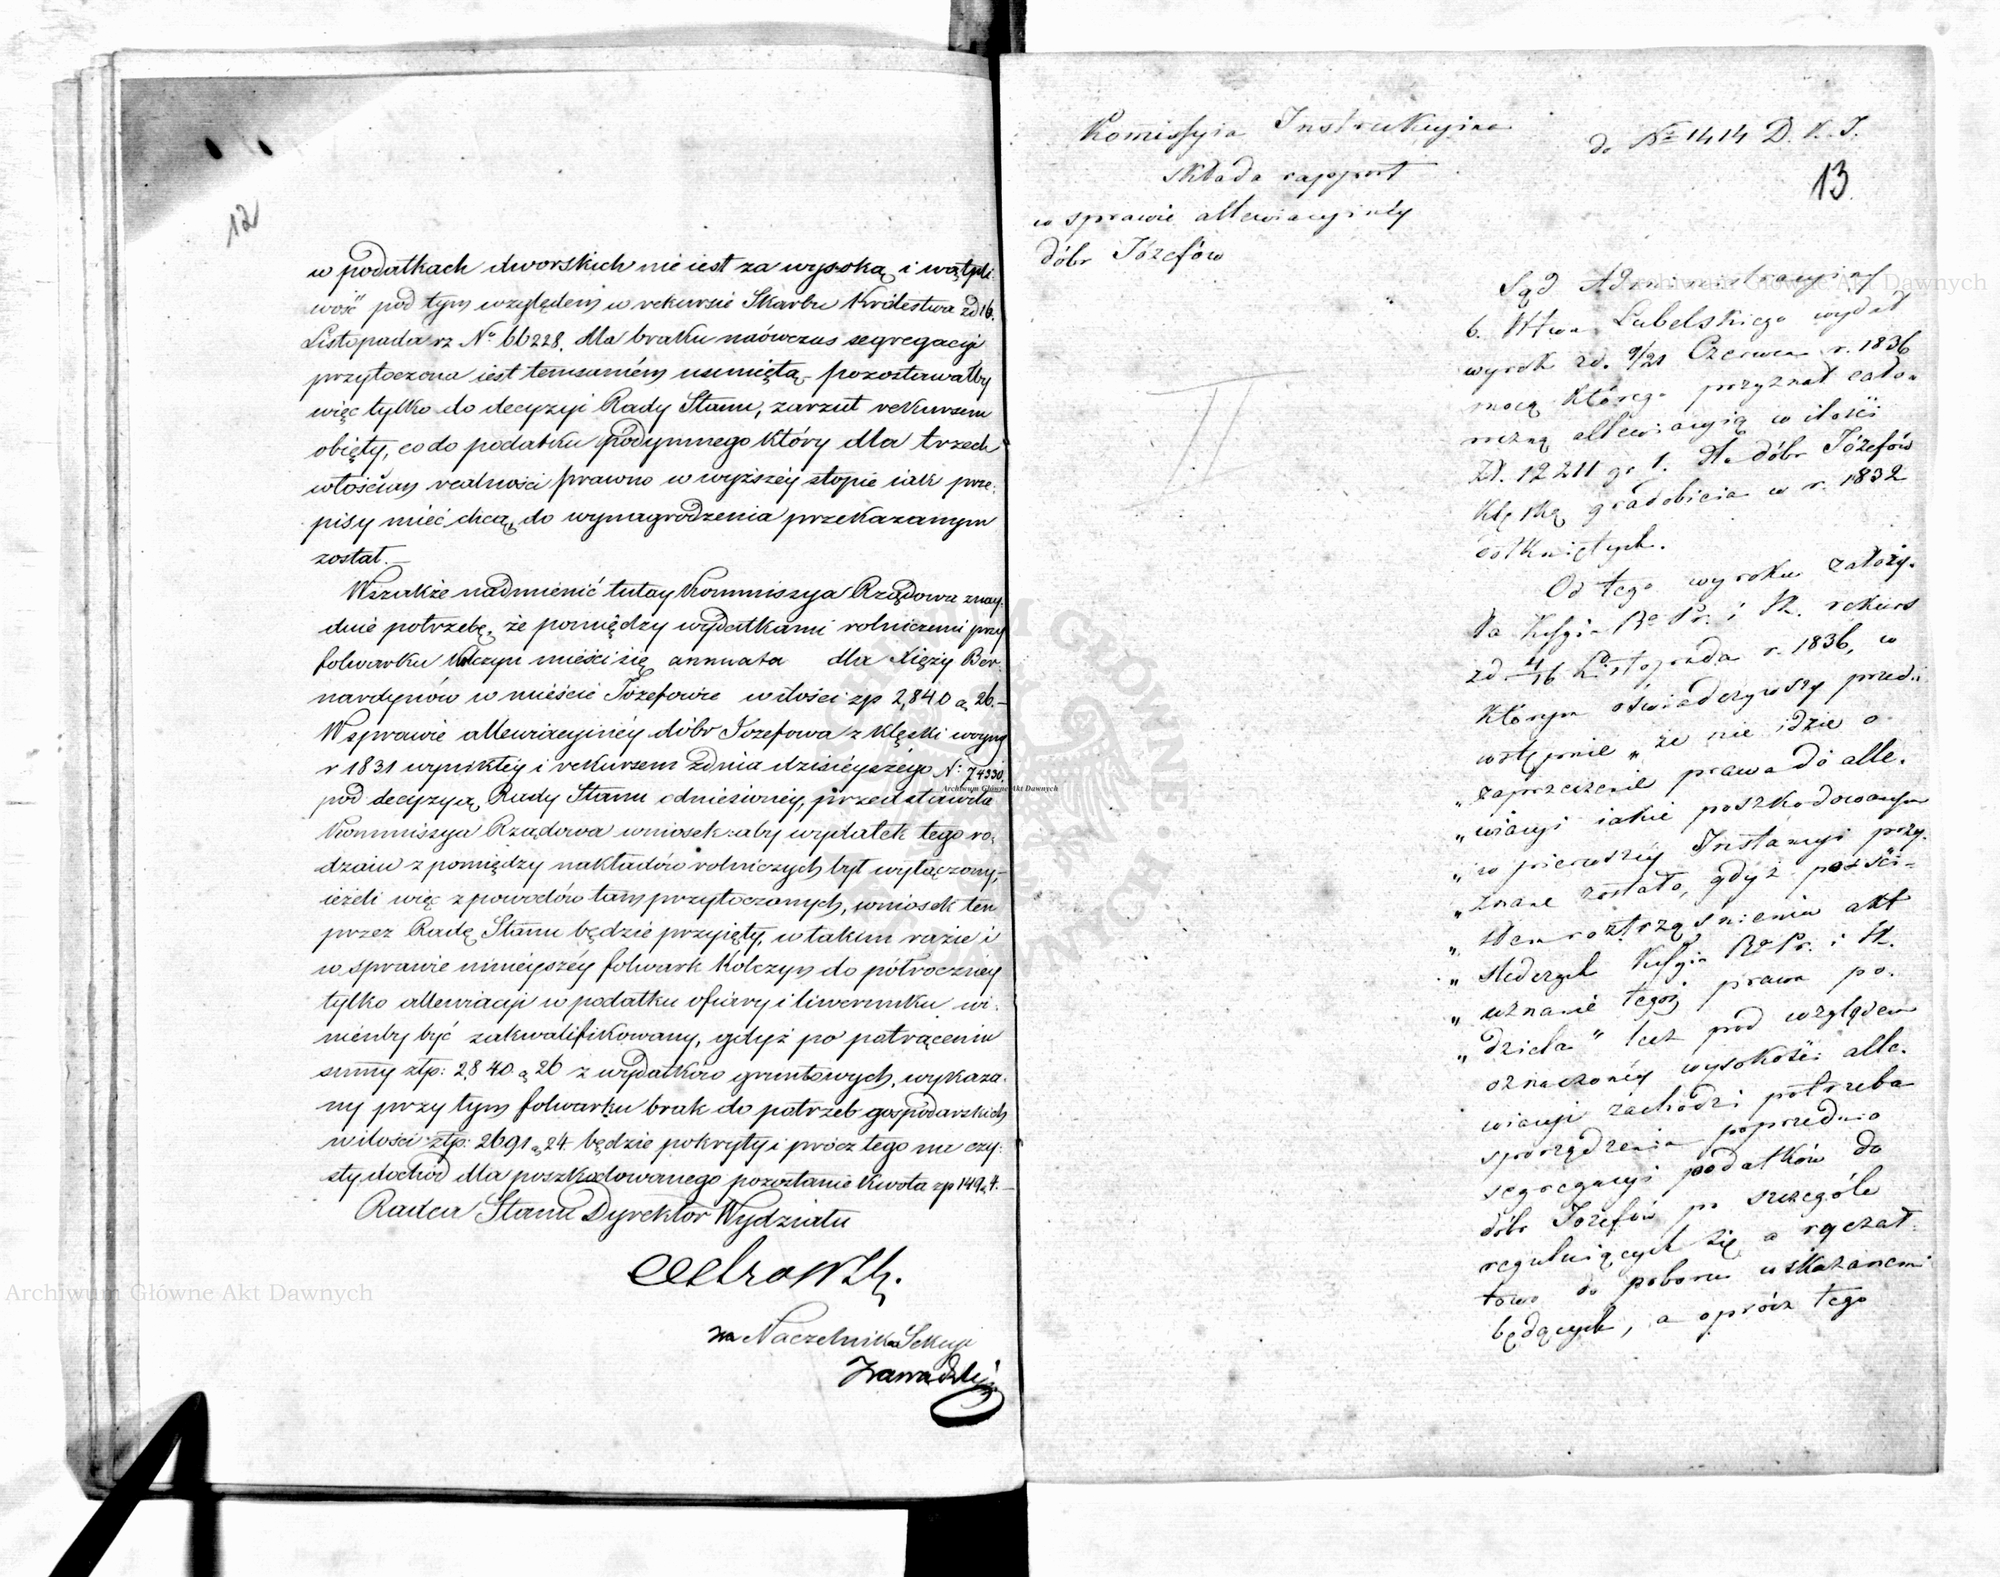 12
w podatkach dworskich nie iest za wysoką i wątpli-
wość pod tym względem w rekursie Skarbu Królestwa zd 16.
Listopada rz No 66228. dla braku naówczas segregacyi
przytoczona iest temsamém usuniętą - pozostawałby
więc tylko do decyzyi Rady Stanu, zarzut rekursem
obięty, co do podatku podymnego który dla trzech
włościan realności prawno w wyższéy stopie iak prze-
pisy mieć chcą, do wynagrodzenia przekazanym
został.—
Wszakże nadmienić tutay Kommissya Rządowa znay-
duie potrzebę, że pomiędzy wydatkami rolniczemi przy
folwarku Kolczyn mieści się annuata dla Xięży Ber-
nardynów w mieście Józefowie w ilości zp 2,840 g 26.—
W sprawie allewiacyinéy dóbr Józefowa z klęski woyny
r 1831 wynikłéy i rekursem z dnia dzisieyszéigo N: 74330.
pod decyzyą Rady Stanu odniesionéy, przedstawiła
Kommissya Rządowa wniosek: aby wydatek tego ro-
dzaiu z pomiędzy nakładów rolniczych był wyłączony,-
ieżeli więc z powodów tam przytoczonych, wniosek ten
przez Radę Stanu będzie przyięty, w takim razie i
w sprawie ninieyszéy folwark Kolczyn do półrocznéy
tylko allewiacyi w podatku ofiary i liwerunku wi-
nienby być zakwalifikowany, gdyż po potrąceniu
summy złp: 2,840 g 26 z wydatków gruntowych, wykaza-
ny przy tym folwarku brak do potrzeb gospodarskich
w ilości złp: 2691 g 24. będzie pokryty i prócz tego na czy-
sty dochód dla poszkodowanego pozostanie kwota zp 149 g 4.—
Radca Stanu Dyrektor Wydziału
za Naczelnika Sekcyi
Zawadzki
Komissyia Instrukcyina
składa rapport
w sprawie allewiacyinéy
dóbr Józefów
do No 1414 D. K. I.
13.
Sąd Administracyiny
b. Wtwa Lubelskiego wydał
wyrok zd. 9/21 Czerwca r. 1836
mocą którego przyznał cało-
roczną allewiacyią w ilości
Zł. 12211 gr 1. dla dóbr Józefów
klęską gradobicia w r. 1832
dotkniętych.
Od tego wyroku założy-
ła Kssyia Ro Pr. i Sk. rekurs
zd 4/16 Listopada r. 1836, w
którym oświadczywszy przed-
wstępnie „że nie idzie o
„zaprzeczenie prawa do alle-
„wiacyi iakie poszkodowanym
„w pierwszéy Instancyi przy-
„znane zostało, gdyż po ści-
„słem roztrząśnieniu akt
„śledczych Kssyia Ro Pr. i Sk.
„uznanie tegoż prawa po-
„dziela" lecz pod względem
oznaczonéy wysokości alle-
wiacyi zachodzi potrzeba
sporządzenia poprzednio
segregacyi podatków do
dóbr Józefów po szczególe
regulujących się a ryczał-
towo do poboru wskazanemi
będących, a oprócz tego